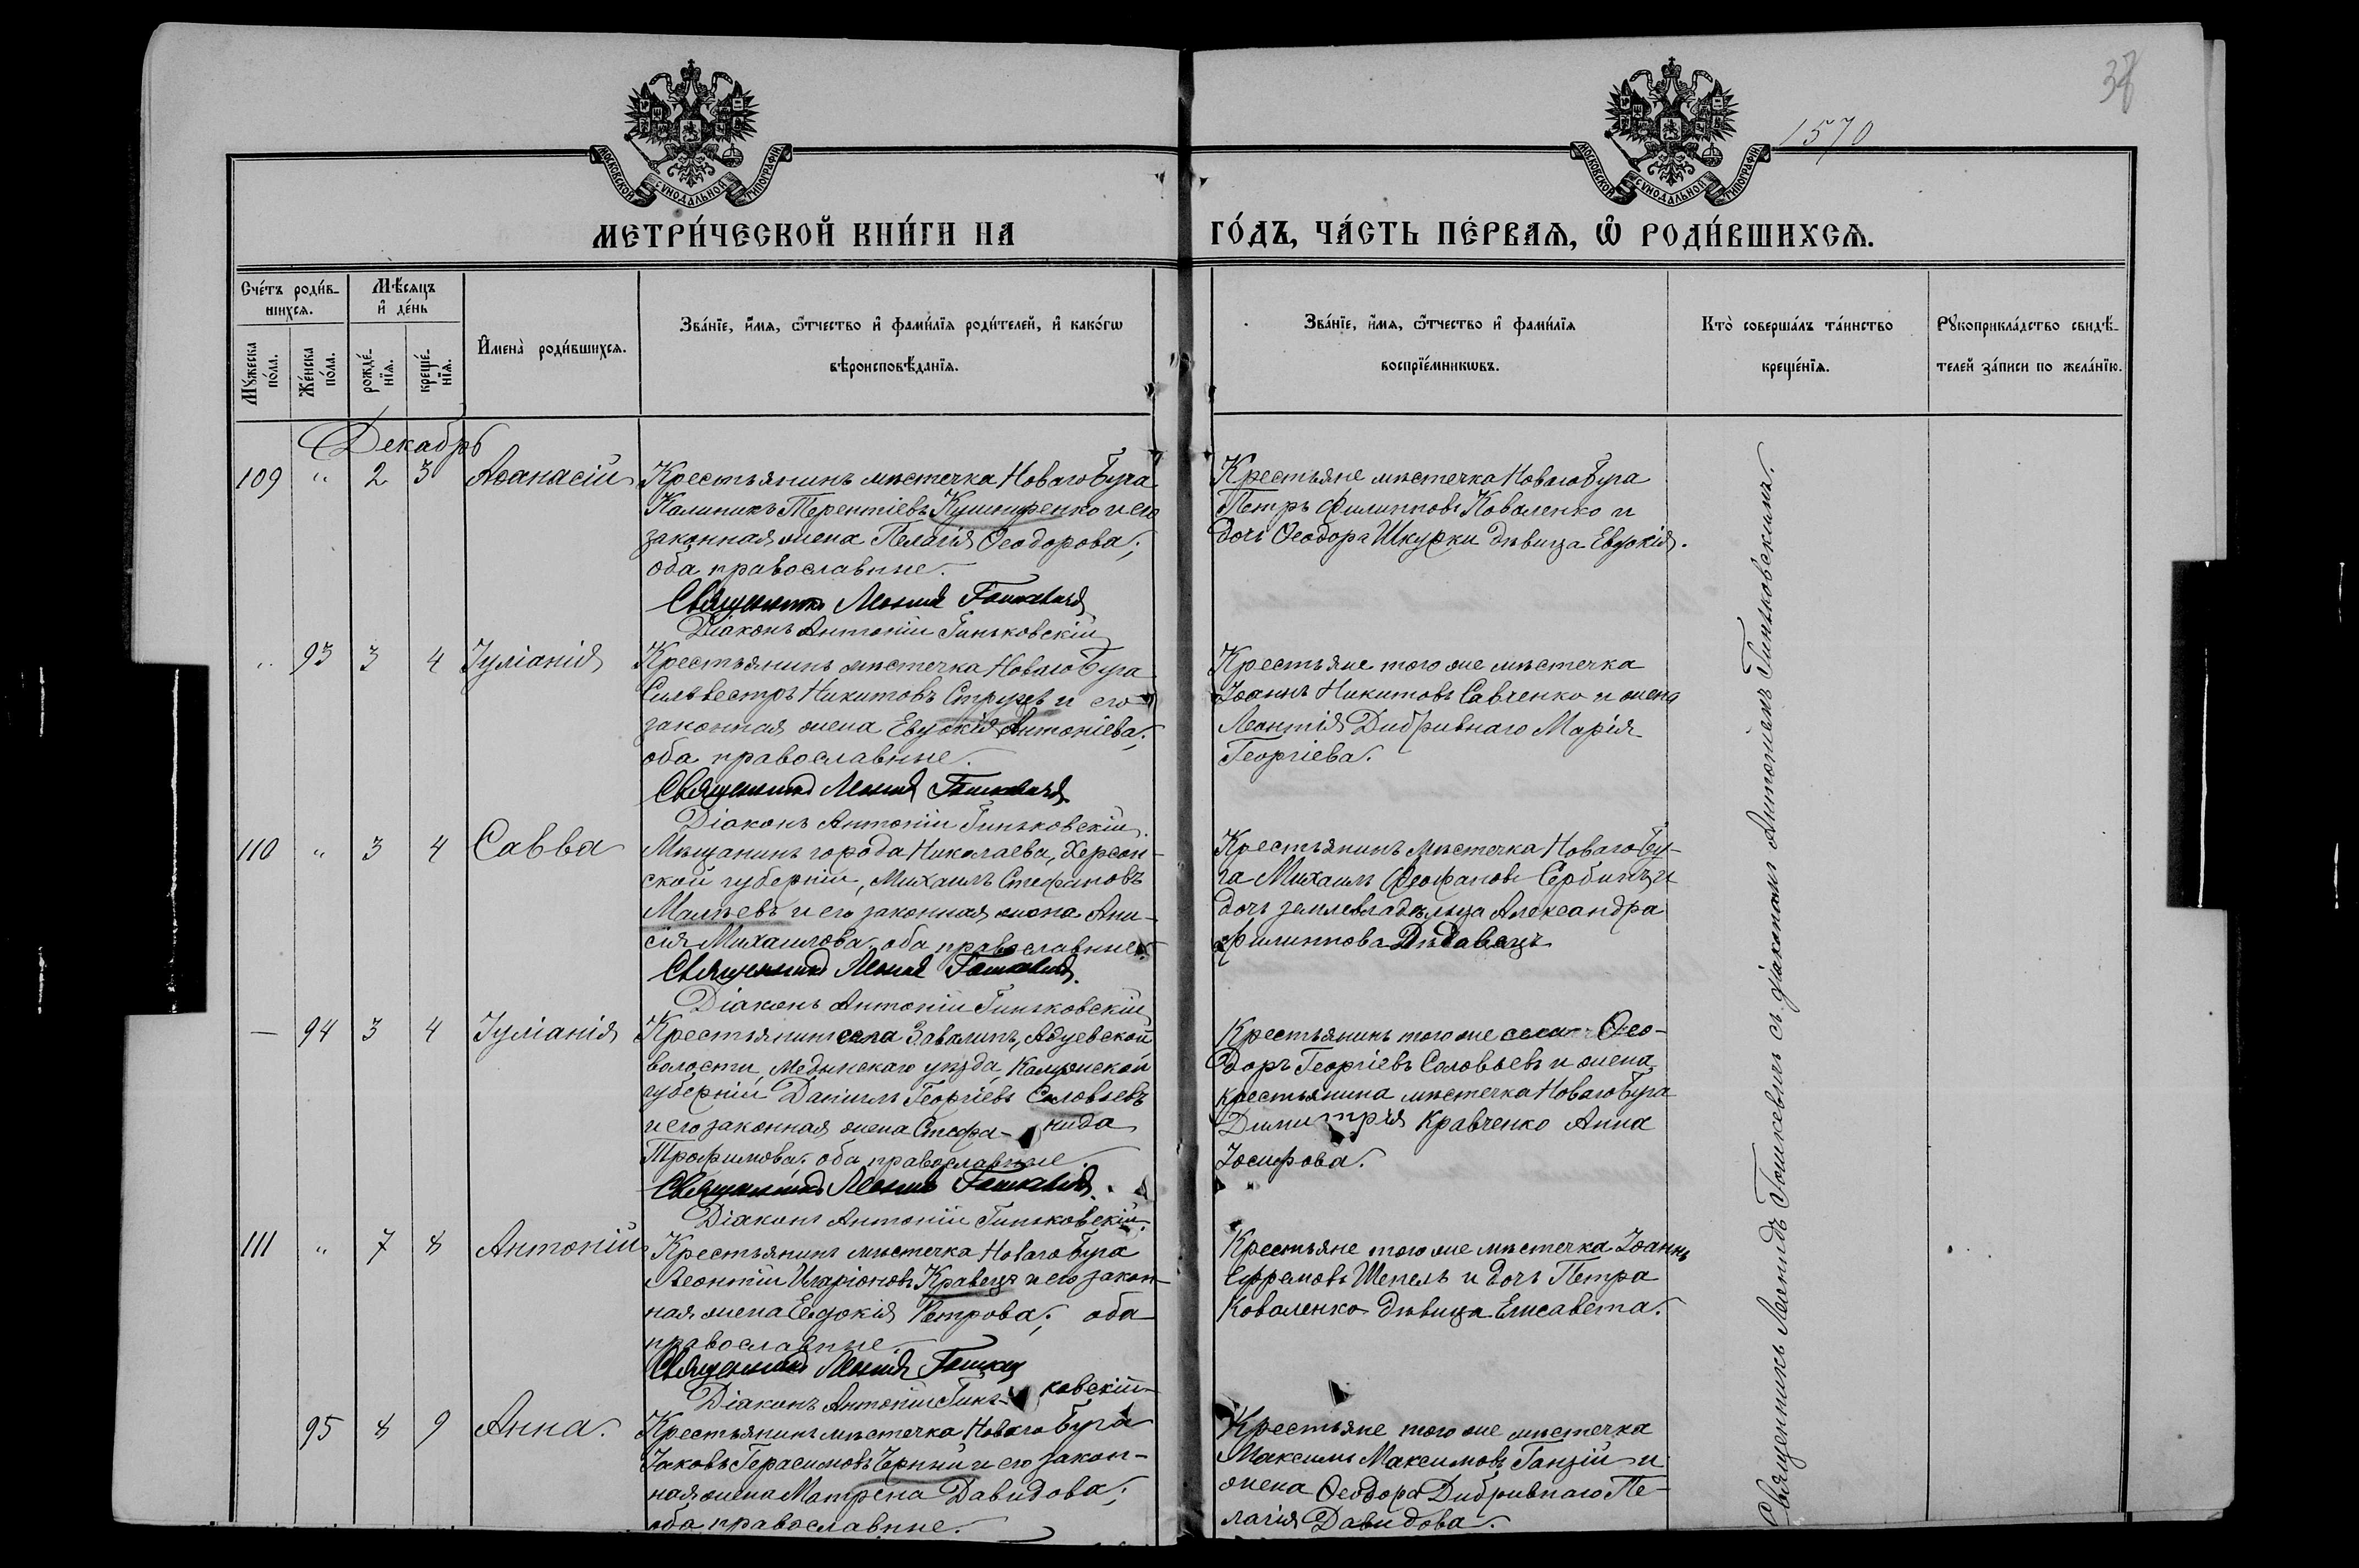 38
1570
МОСКОВСКОЙ СѴНОДАЛЬНОЙ ТИПОГРАФІИ
МОСКОВСКОЙ СѴНОДАЛЬНОЙ ТИПОГРАФІИ
МЕТРИ́ЧЕСКОЙ КНИ́ГИ НА
ГО́ДЪ, ЧА́СТЬ ПЕ́РВАѦ, Ѡ҆ РОДИ́ВШИХСѦ.
Сче́тъ роди́в-
шихсѧ.
Мꙋ́жеска по́ла.
Же́нска по́ла.
Мѣ́сѧцъ
и҆ де́нь
рожде́-
нїѧ.
креще́-
нїѧ.
И҆мена̀ роди́вшихсѧ.
Зва́нїе, и҆́мѧ, ѻ҆́тчество и҆ фами́лїѧ роди́телей, и҆ како́гѡ
вѣроисповѣ́данїѧ.
Зва́нїе, и҆́мѧ, ѻ҆́тчество и҆ фами́лїѧ
воспрїе́мникѡвъ.
Кто̀ соверша́лъ та́инство
креще́нїѧ.
Рꙋкоприкла́дство свидѣ́-
телей за́писи по жела́нїю.
Декабрь
109 " 2 3 Аѳанасій
Крестьянинъ мѣстечка Новаго Буга
Калиникъ Терентіевъ Кушниренко и его
законная жена Пелагія Ѳеодорова;
оба православные.
Священникъ Леонид Гошкевичъ
Діаконъ Антоній Гиньковскій
Крестьяне мѣстечка Новаго Буга
Петръ Филипповъ Коваленко и
дочь Ѳеодора Шкурки дѣвица Евдокія.
" 93 3 4 Іуліанія
Крестьянинъ мѣстечка Новаго Буга
Сильвестръ Никитовъ и его
законная жена Евдокія Антоніева;
оба православные.
Священникъ Леонид Гошкевичъ
Діаконъ Антоній Гиньковскій.
Крестьяне того же мѣстечка
Іоаннъ Никитовъ Савченко и жена
Леонтія Дибривнаго Марія
Георгіева.
110 " 3 4 Савва
Мѣщанинъ города Николаева, Херсон-
ской губерніи, Михаилъ Стефановъ
Малѣевъ и его законная жена Ани-
сія Михаилова; оба православные.
Священникъ Леонид Гошкевичъ.
Діаконъ Антоній Гиньковскій
Крестьянинъ мѣстечка Новаго Бу-
га Михаилъ Ѳеофановъ Сербинъ и
дочь землевладѣльца Александра
Филиппова Дѣдавецъ
— 94 3 4 Іуліанія
Крестьянинъ села Завалинъ, Адуевской
волости, Медынскаго уѣзда, Калужской
губерніи Даніилъ Георгіевъ Соловьевъ
и его законная жена Стефа- нида
Трофимова; оба православные.
Священникъ Леонид Гошкевичъ.
Діаконъ Антоній Гиньковскій.
Крестьянинъ того же села Ѳео-
доръ Георгіевъ Соловьевъ и жена
крестьянина мѣстечка Новаго Буга
Димитрія Кравченко Анна
Іосифова.
111 " 7 8 Антоній
Крестьянинъ мѣстечка Новаго Буга
Леонтій Иларіоновъ Кравецъ и его закон-
ная жена Евдокія Петрова; оба
православные.
Священникъ Леонид
Діаконъ Антоній Гинь- ковскій
Крестьяне того же мѣстечка Іоаннъ
Ефремовъ Шепель и дочь Петра
Коваленко дѣвица Елисавета.
95 8 9 Анна.
Крестьянинъ мѣстечка Новаго Буга
Іаковъ Герасимовъ Черный и его закон-
ная жена Матрена Давидова;
оба православные.
Крестьяне того же мѣстечка
Максимъ Максимовъ Ганзій и
жена Ѳеодора Дибривнаго Пе-
лагія Давидова.
Священникъ Леонидъ Гошкевичъ съ діакономъ Антоніемъ Гиньковскимъ.